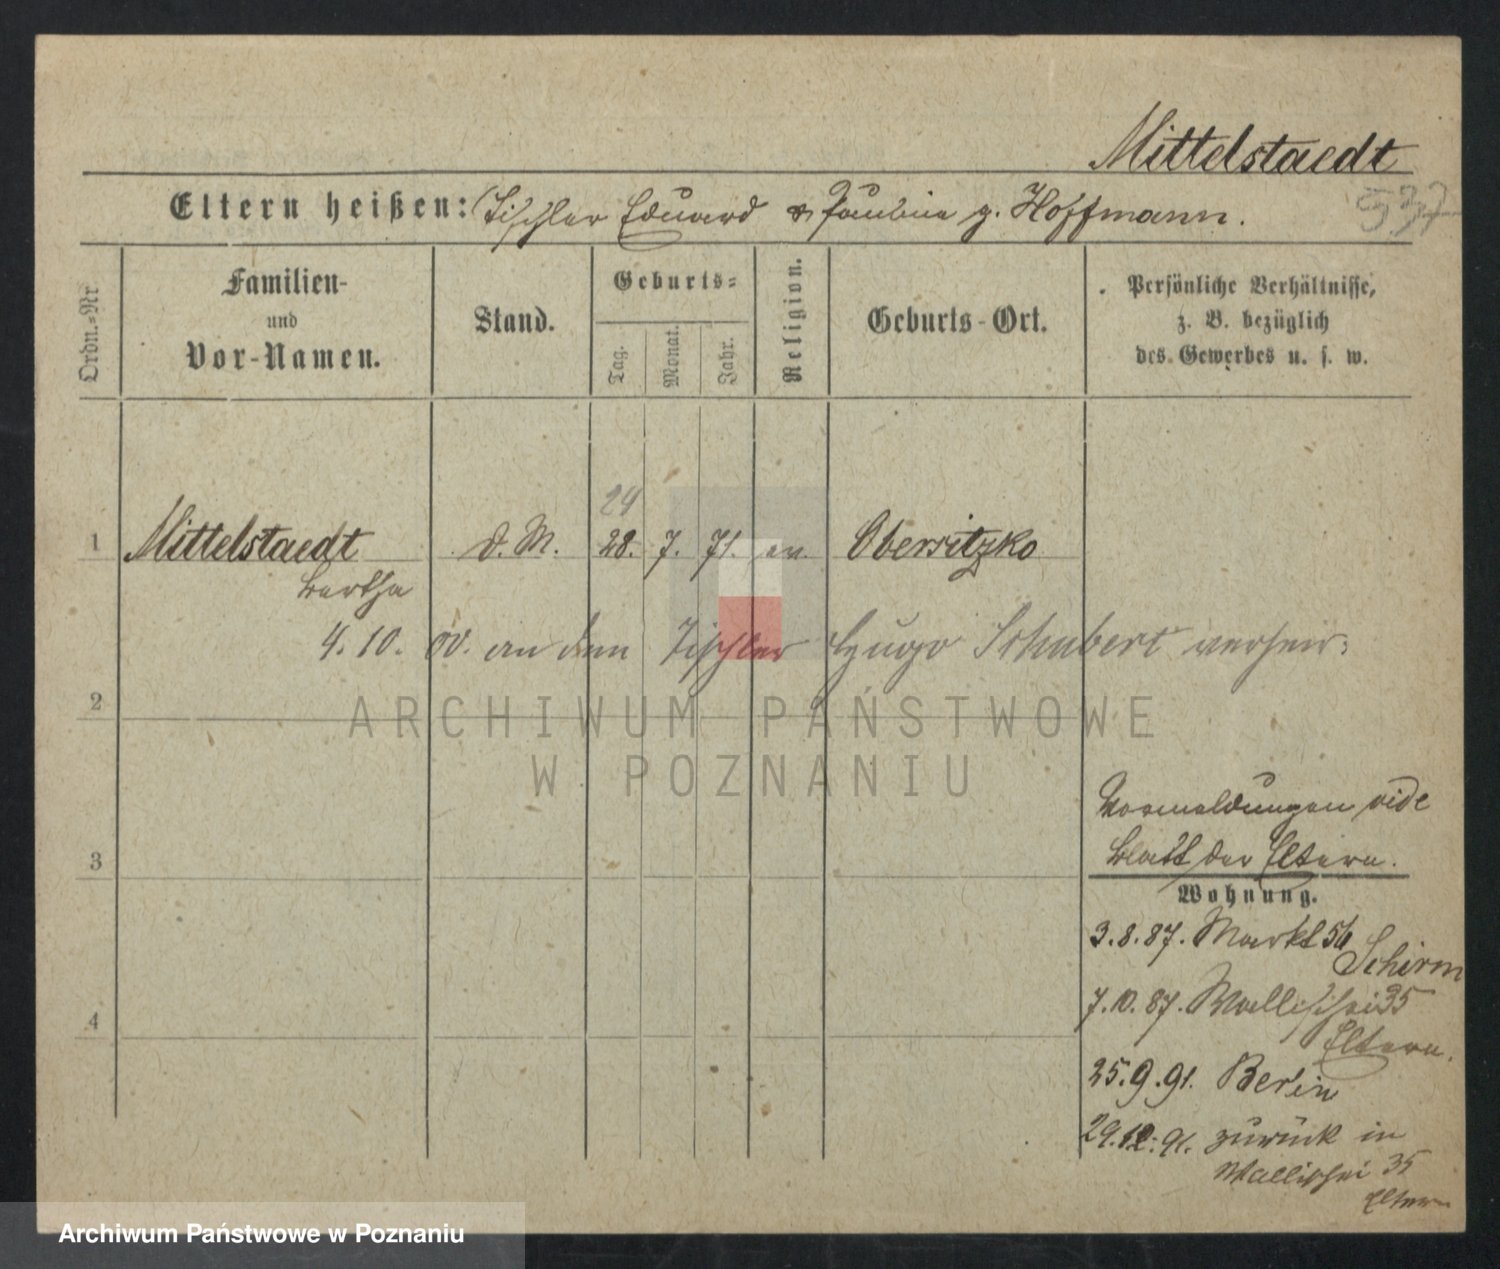 Mittelstaedt
Eltern heißen: Tischler Eduard & Pauline g. Hoffmann.
537
Ordn.-Nr
Familien-
und
Vor-Namen.
Stand.
Geburts-
Tag.
Monat.
Jahr.
Religion.
Geburts-Ort.
Persönliche Verhältnisse,
z. B. bezüglich
des Gewerbes u. s. w.
24
1 Mittelstaedt d. M. 28. 7. 71. ev. Obersitzko
Bertha
4. 10. 00. an dem Tischler Hugo Schubert verheir:
2
ARCHIWUM PAŃSTWOWE
W POZNANIU
Vormeldungen vide
3 Blatt der Eltern.
Wohnung.
3. 8. 87. Markt 56
Schirm
7. 10. 87. Wallischei 35
4
Eltern.
25. 9. 91. Berlin
29. 12. 91. zurück in
Wallischei 35
Eltern
Archiwum Państwowe w Poznaniu